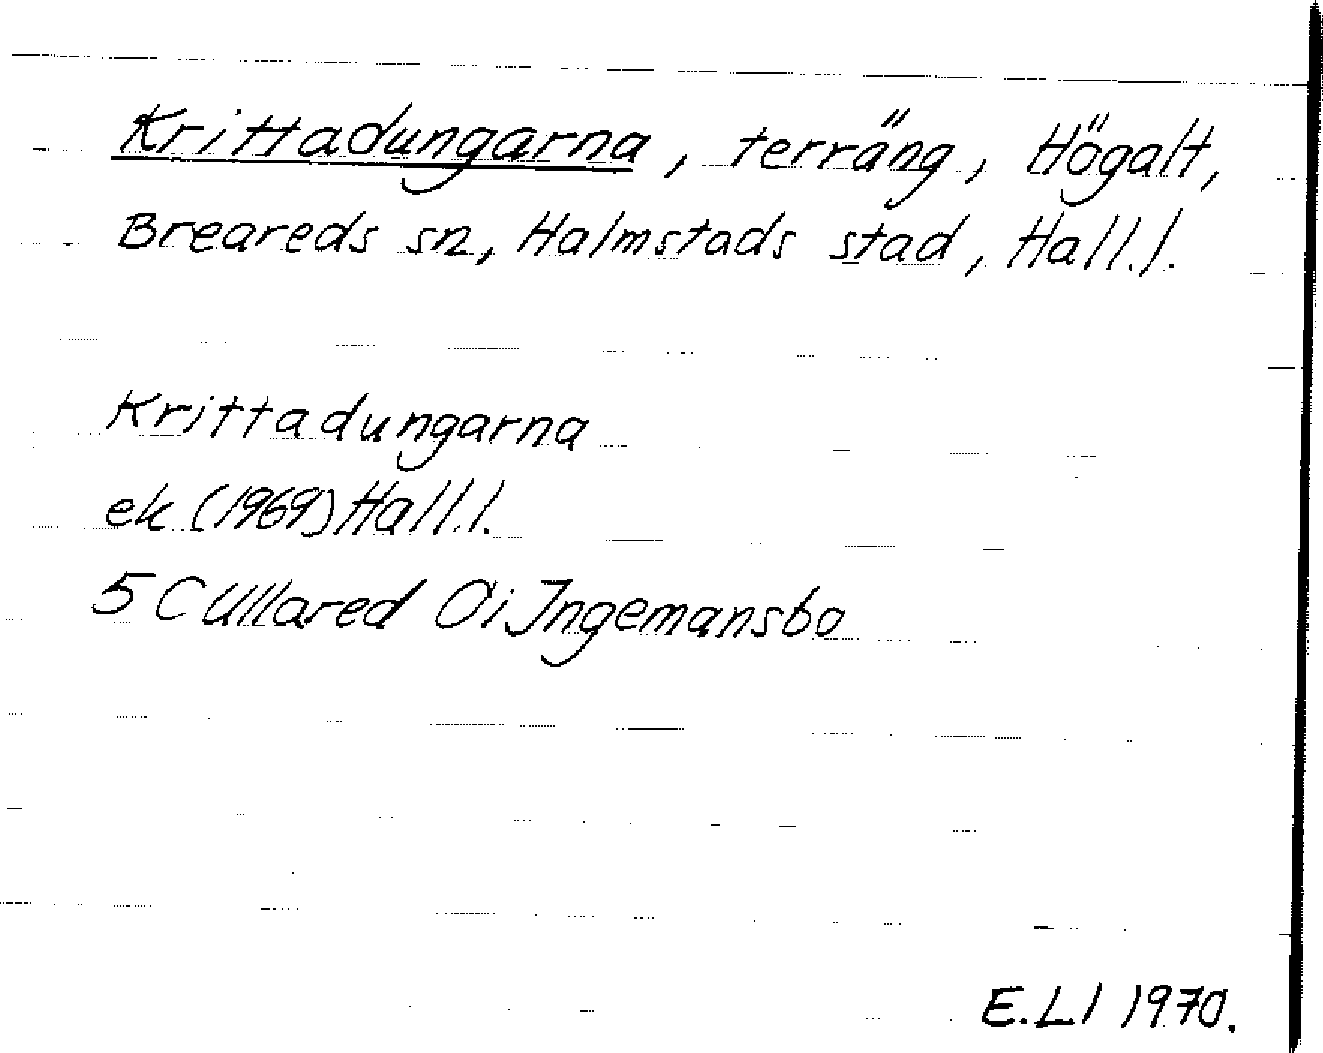 Krittadungarna, terräng, Högalt,
Breareds sn, Halmstads stad, Hall.l.
Krittadungarna
ek (1969) Hall.l.
5 C Ullared Oi Ingemansbo
E.Ll 1970.